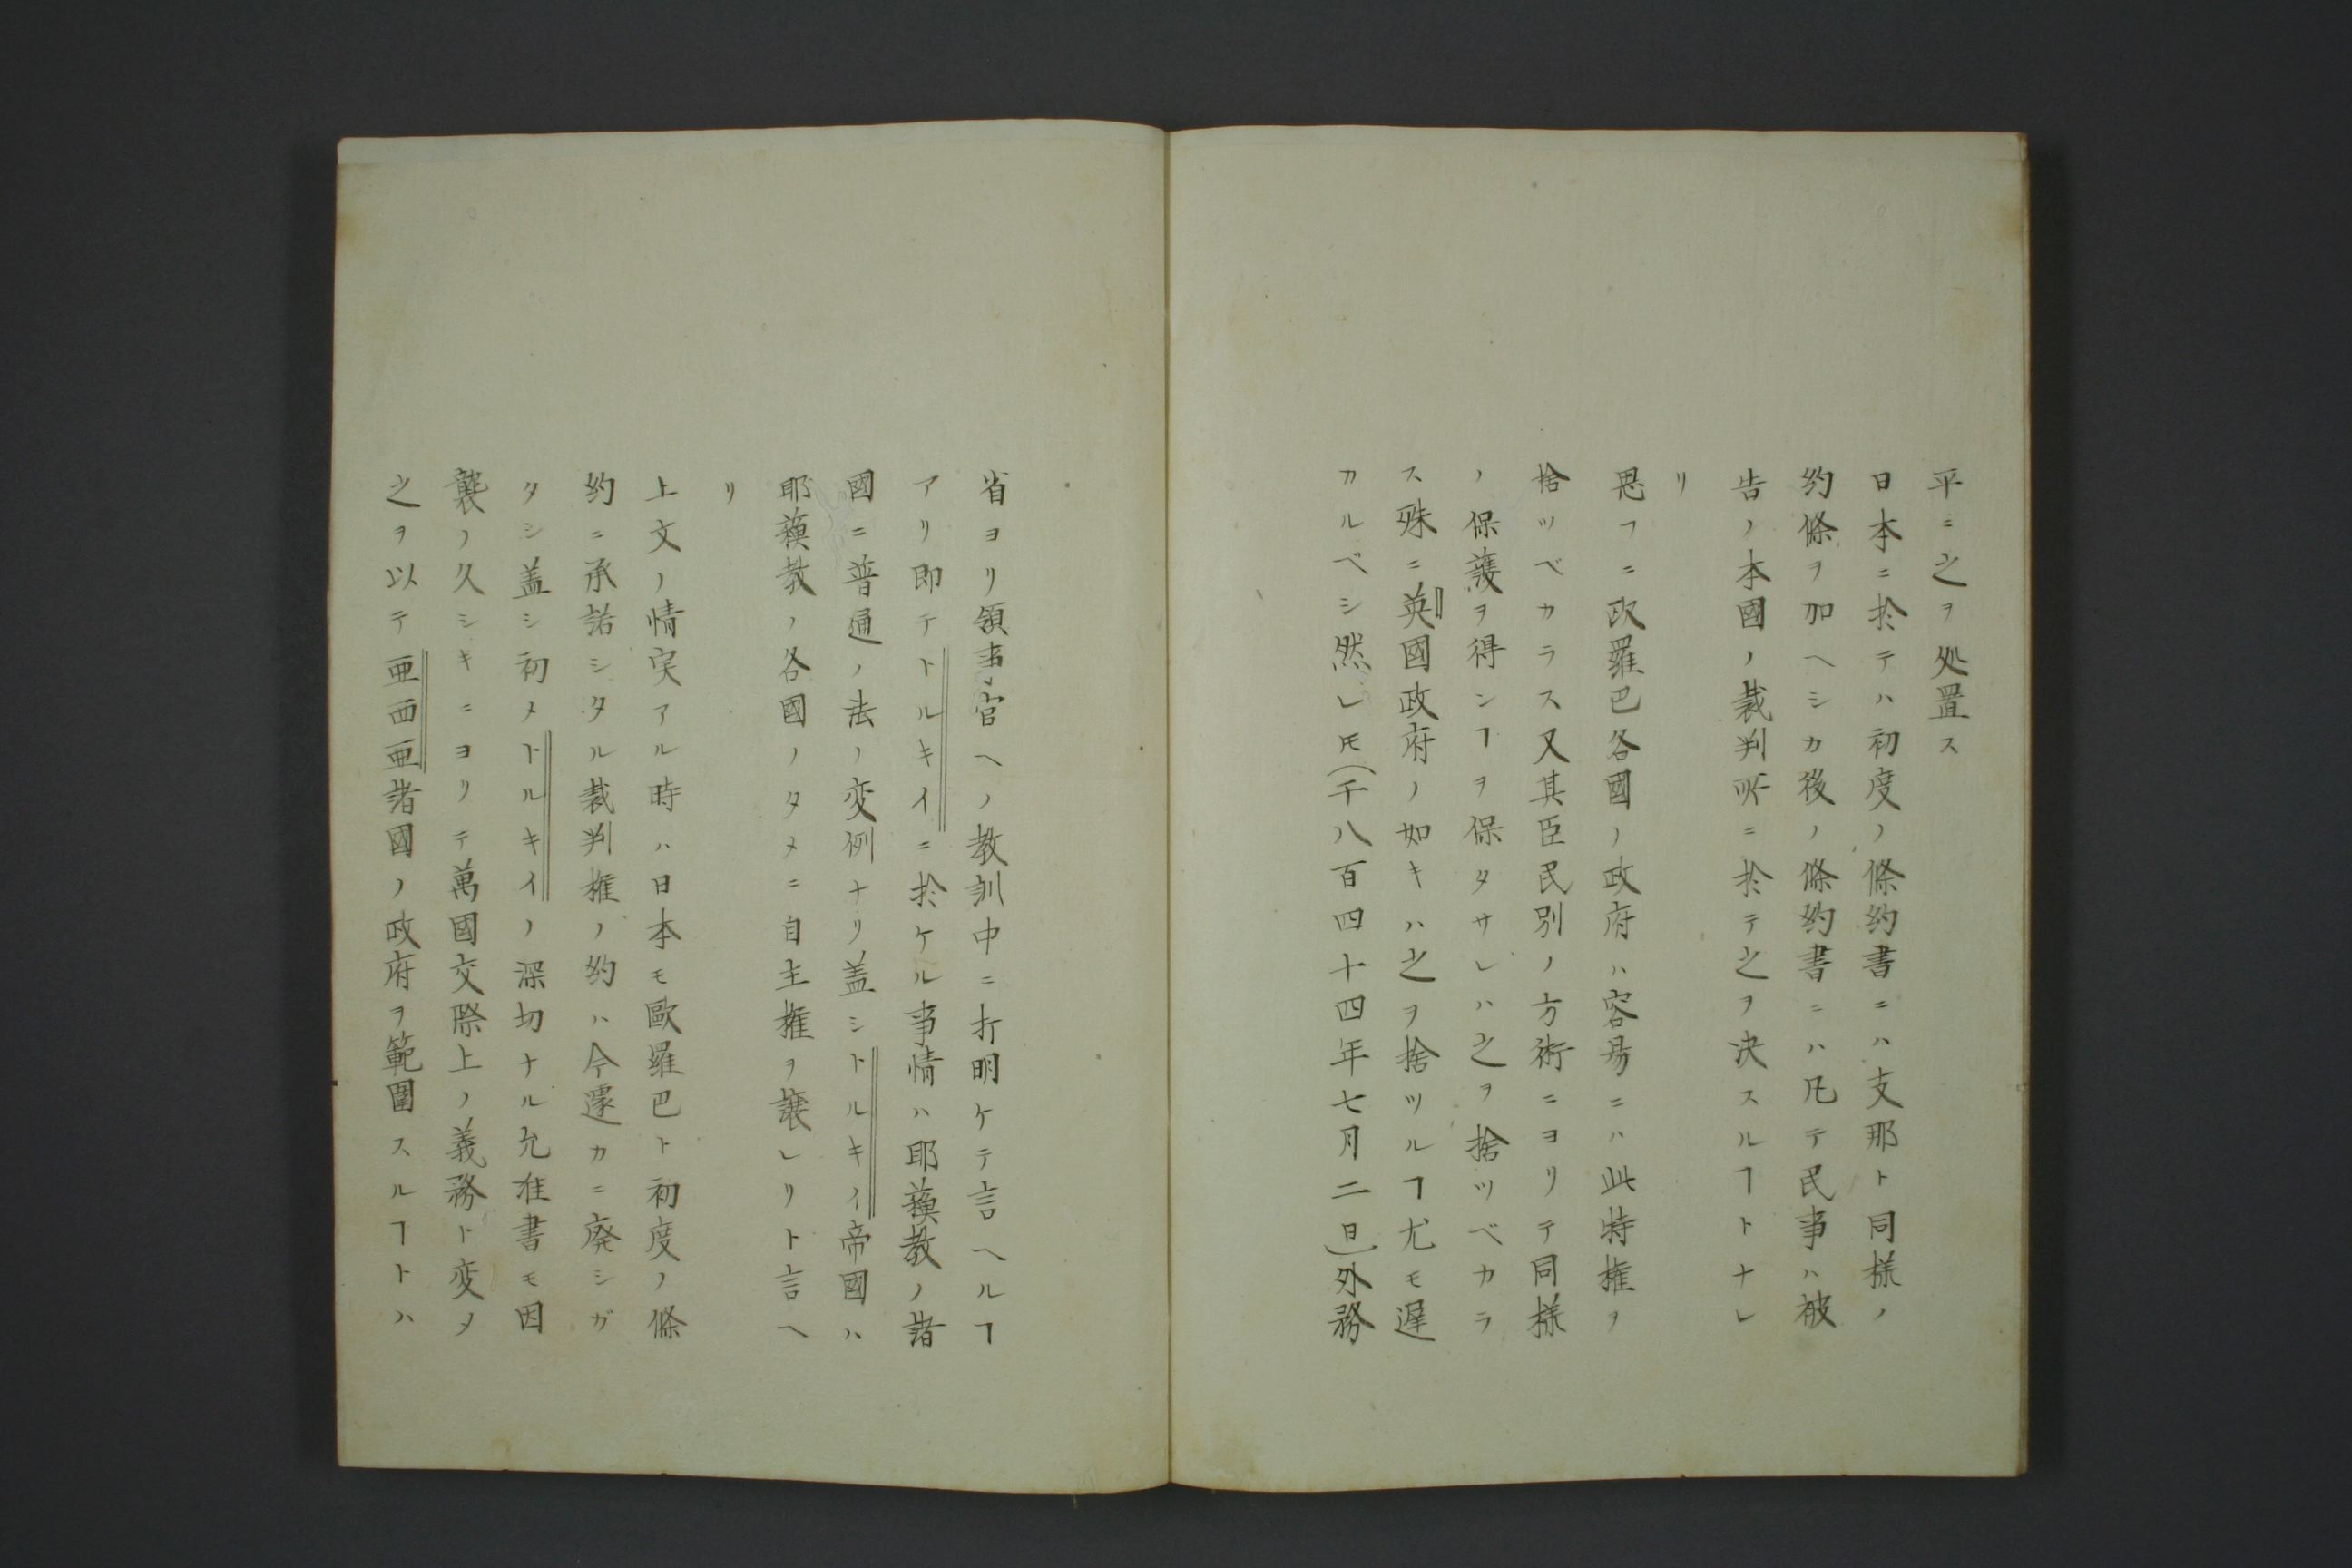 平ニ之ヲ処置ス
日本ニ於テハ初度ノ條約書ニハ支那ト同様ノ
約條ヲ加ヘシカ後ノ條約書ニハ凡テ民事ハ被
告ノ本國ノ裁判所ニ於テ之ヲ決スルヿトナレ
リ
思フニ欧羅巴各國ノ政府ハ容昜ニハ此特権ヲ
捨ツベカラス又其臣民別ノ方術ニヨリテ同様
ノ保護ヲ得ンヿヲ保タサレハ之ヲ捨ツベカラ
ス殊ニ英國政府ノ如キハ之ヲ捨ツルヿ尤モ遅
カルベシ然レ𪜈(千八百四十四年七月二日)外務
省ヨリ領事官ヘノ教訓中ニ打明ケテ言ヘルヿ
アリ即チトルキイニ於ケル事情ハ耶蘓教ノ諸
國ニ普通ノ法ノ変例ナリ盖シトルキイ帝國ハ
耶蘓教ノ各國ノタメニ自主権ヲ譲レリト言ヘ
リ
上文ノ情実アル時ハ日本モ歐羅巴ト初度ノ條
約ニ承諾シタル裁判権ノ約ハ今遽カニ廃シガ
タシ盖シ初メトルキイノ深切ナル允准書モ因
襲ノ久シキニヨリテ萬國交際上ノ義務ト変メ
之ヲ以テ亜西亜諸國ノ政府ヲ範圍スルヿトハ